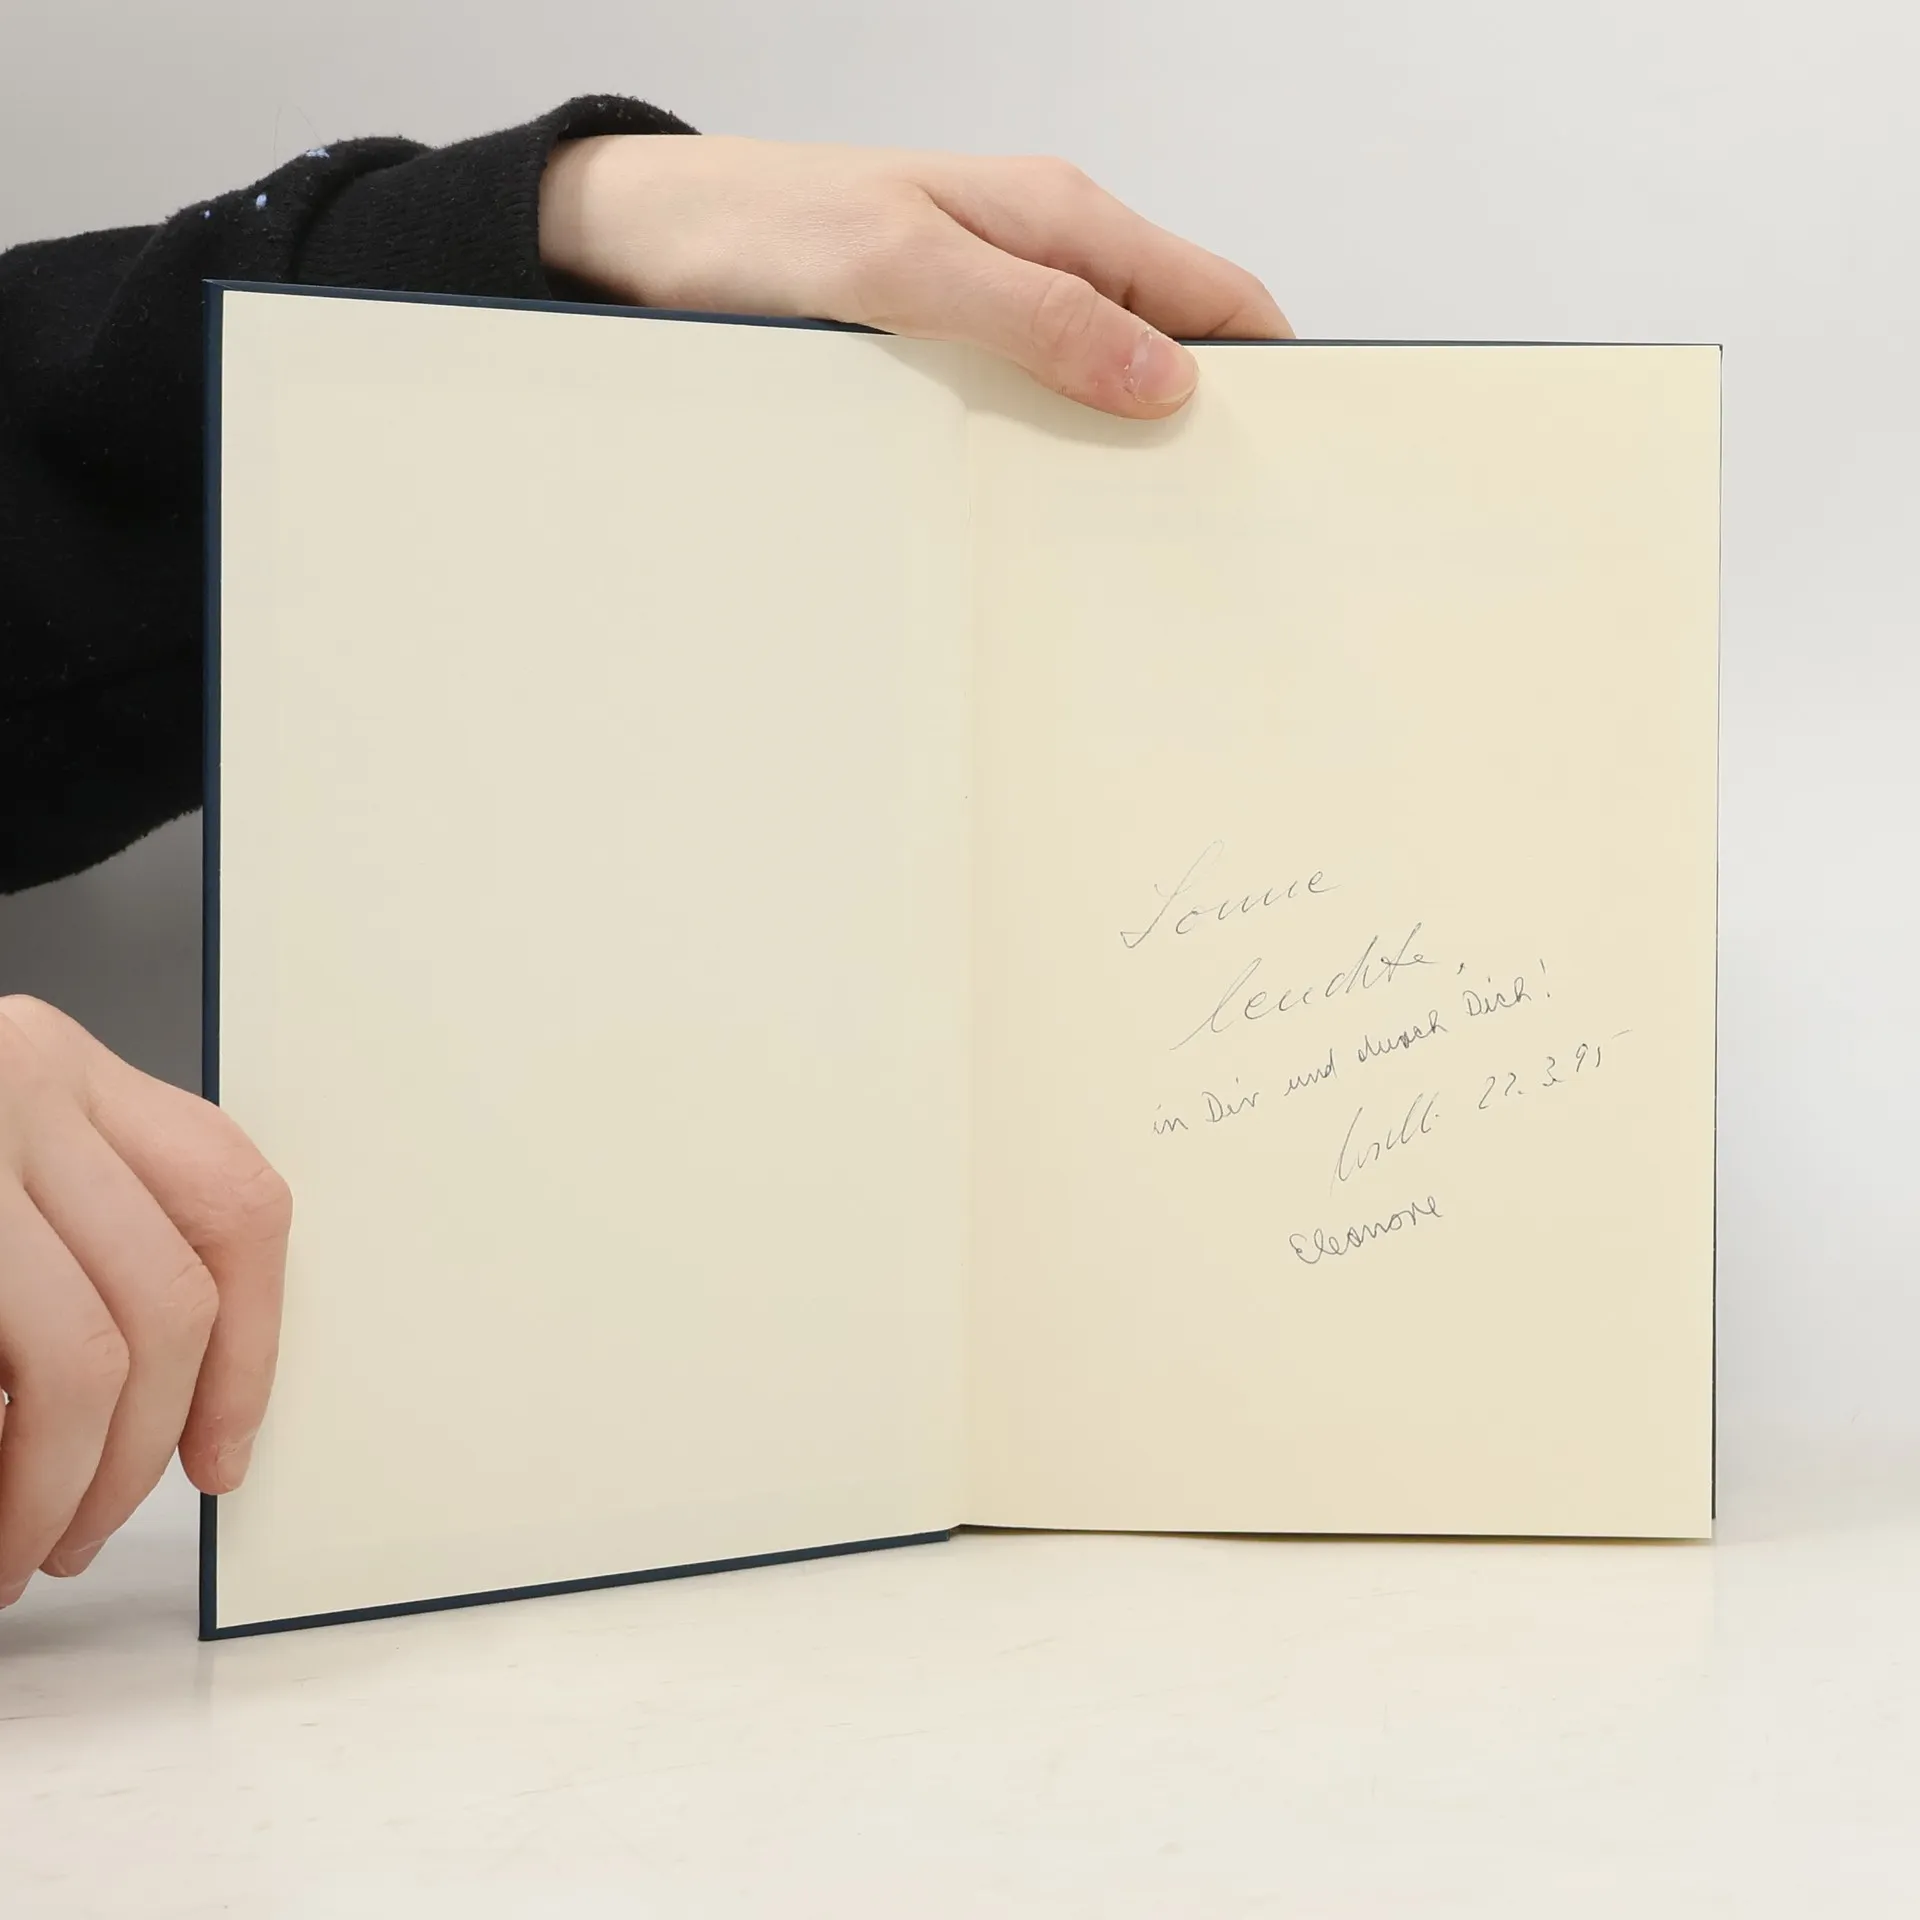 Sonne
leuchte,
in Dir und durch Dich!
22. 3. 95
Eleonore